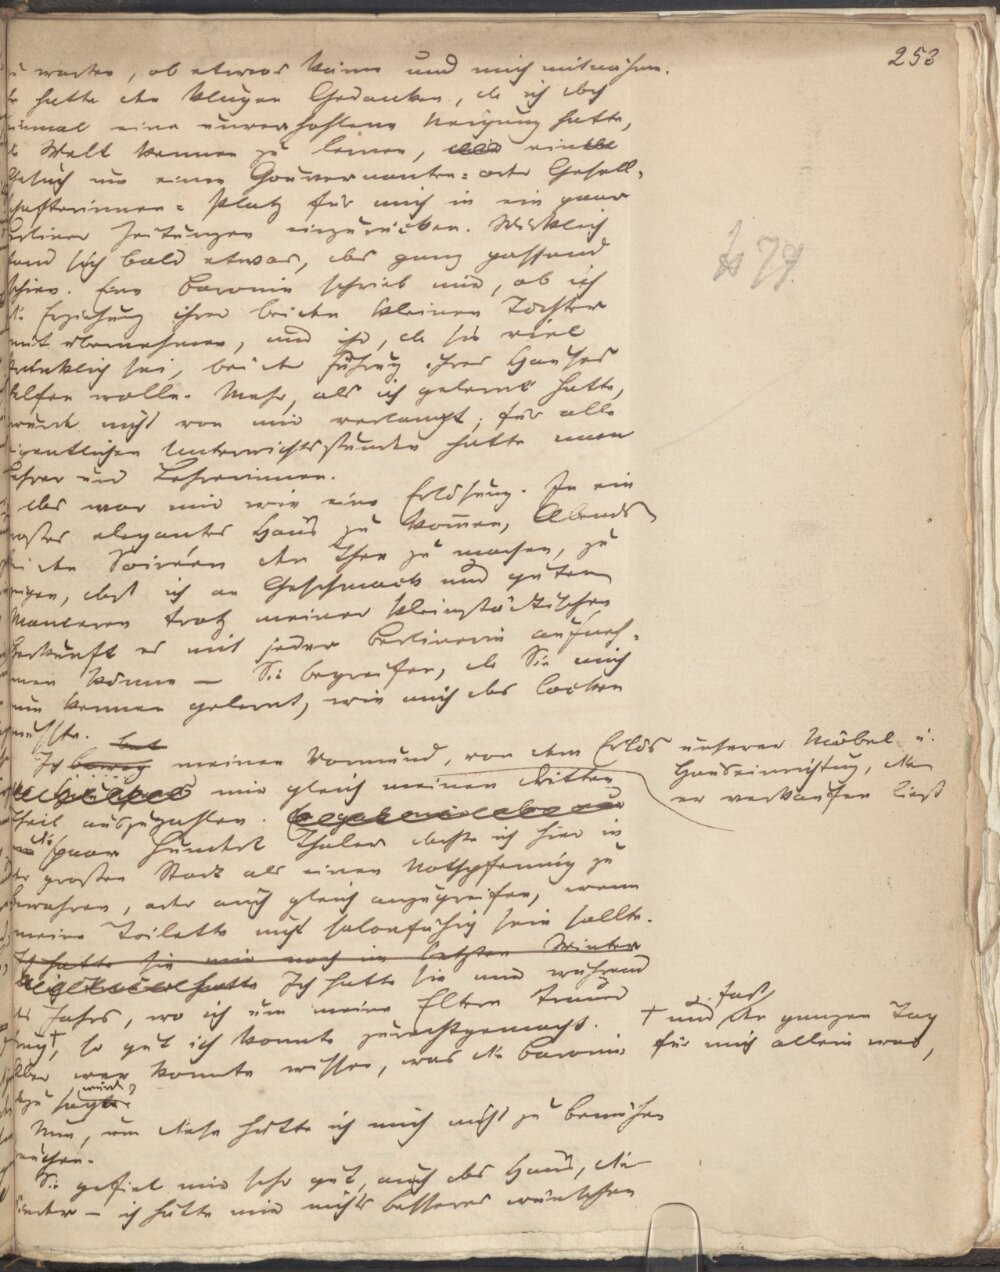 253
zu warten, ob etwas käme und mich mitnähme.
hatte den klugen Gedanken, da ich doch
einmal eine unverhohlene Neigung hatte,
die Welt kennen zu lernen, ein
Gesuch um einen Gouvernanten= oder Gesell-
schafterinnen=Platz für mich in ein paar
Berliner Zeitungen einzurücken. Wirklich
fand sich bald etwas, das ganz passend
schien. Eine Baronin schrieb mir, ob ich
die Erziehung ihrer beiden kleinen Töchter
mit übernehmen, und ihr, da sie viel
kränklich sei, bei der Führung ihres Hauses
helfen wolle. Mehr, als ich gelernt hatte,
wurde nicht von mir verlangt; für alle
eigentlichen Unterrichtsstunden hatte man
Lehrer und Lehrerinnen.
Das war mir wie eine Erlösung. In ein
großes elegantes Haus zu kommen, Abends
bei den Soiréen den Thee zu machen, zu
zeigen, daß ich an Geschmack und guten
Manieren trotz meiner kleinstädtischen
Herkunft es mit jeder Berlinerin aufneh-
men könne — Sie begreifen, da Sie mich
nun kennen gelernt, wie mich das locken
mußte.
bat
Ich bewog meinen Vormund, von dem Erlös unserer Möbel u.
Hauseinrichtung, die
er verkaufen ließ
mir gleich meinen dritten
Theil auszuzahlen.
die paar hundert Thaler dachte ich hier in
der großen Stadt als einen Nothpfennig zu
bewahren, oder auch gleich anzugreifen, wenn
meine Toilette nicht salonfähig sein sollte.
Ich hatte sie mir noch im letzten Winter
hatte Ich hatte sie mir während
des Jahrs, wo ich um meine Eltern Trauer
trug †, so gut ich konnte zurechtgemacht.
† und fast der ganzen Tag
für mich allein war,
Aber wer konnte wissen, was die Baronin
dazu sagte
würde?
Nun, um diese hatte ich mich nicht zu bemühen
brauchen.
Sie gefiel mir sehr gut, auch das Haus, die
Kinder — ich hätte mir nichts besseres wünschen